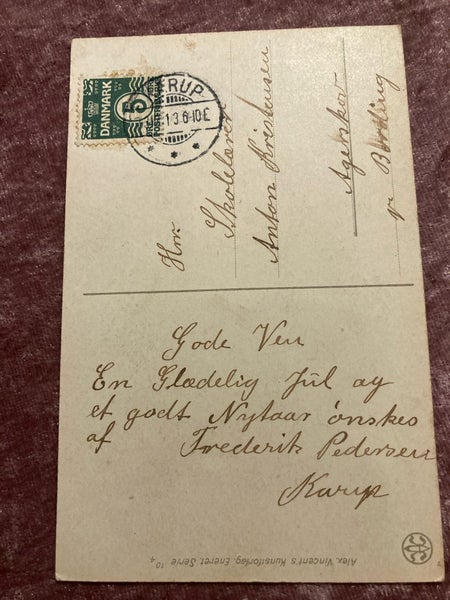 5
DANMARK
RUP
1.3.6-10E
Hr. Skolelærer
Anton Kristensen
Agerskov
pr
Gode Ven
En Glædelig Jul og
et godt Nytaar ønskes
af Frederik Pedersen
Karup
Alex. Vincent's Kunstforlag. Eneret. Serie 10/4